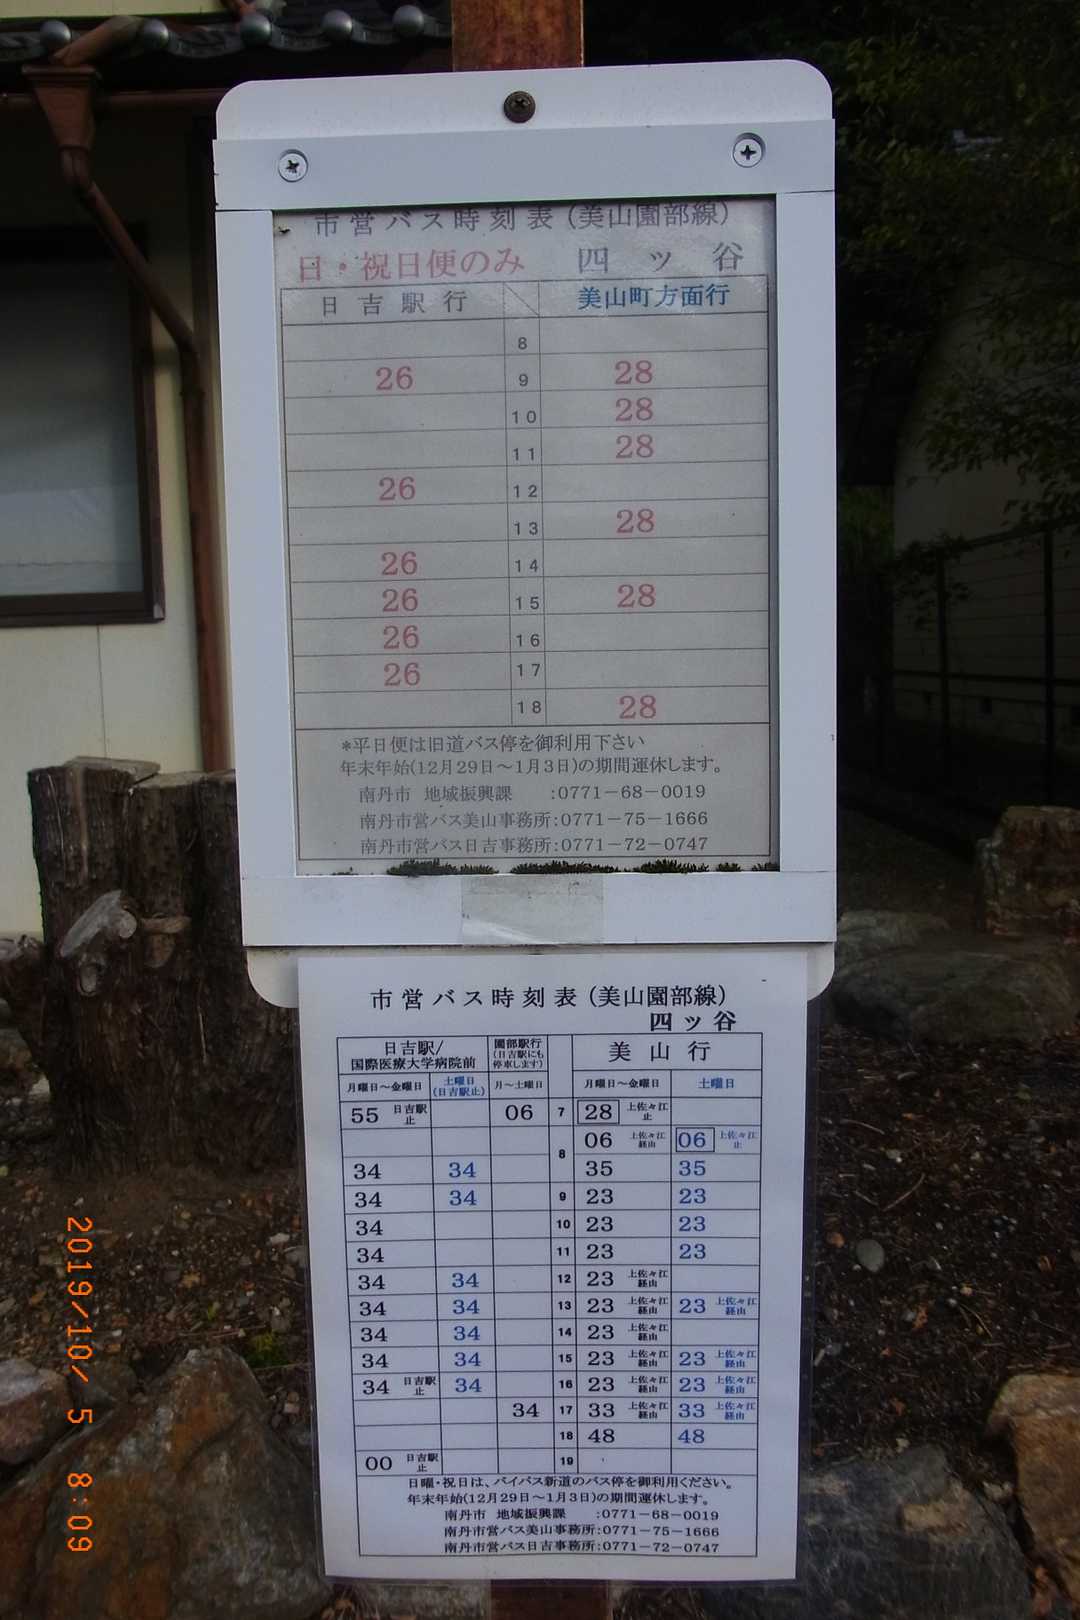 市営バス時刻表(美山園部線)
日・祝日便のみ 四ッ谷
日吉駅行 美山町方面行
8
26 9 28
10 28
11 28
26 12
13 28
26 14
26 15 28
26 16
26 17
18 28
*平日便は旧道バス停を御利用下さい
年末年始(12月29日~1月3日)の期間運休します。
南丹市 地域振興課 :0771-68-0019
南丹市営バス美山事務所:0771-75-1666
南丹市営バス日吉事務所:0771-72-0747
市営バス時刻表(美山園部線)
四ッ谷
日吉駅/国際医療大学病院前 園部駅行(日吉駅にも停車します) 美山行
月曜日~金曜日 土曜日(日吉駅止) 月~土曜日 月曜日~金曜日 土曜日
55 日吉駅止 06 7 28 上佐々江止
06 上佐々江経由 06 上佐々江止
34 34 8 35 35
34 34 9 23 23
34 10 23 23
34 11 23 23
34 34 12 23 上佐々江経由
34 34 13 23 上佐々江経由 23 上佐々江経由
34 34 14 23 上佐々江経由
34 34 15 23 上佐々江経由 23 上佐々江経由
34 日吉駅止 34 16 23 上佐々江経由 23 上佐々江経由
34 17 33 上佐々江経由 33 上佐々江経由
18 48 48
00 日吉駅止 19
日曜・祝日は、バイパス新道のバス停を御利用ください。
年末年始(12月29日~1月3日)の期間運休します。
南丹市 地域振興課 :0771-68-0019
南丹市営バス美山事務所:0771-75-1666
南丹市営バス日吉事務所:0771-72-0747
2019/10/ 5 8:09